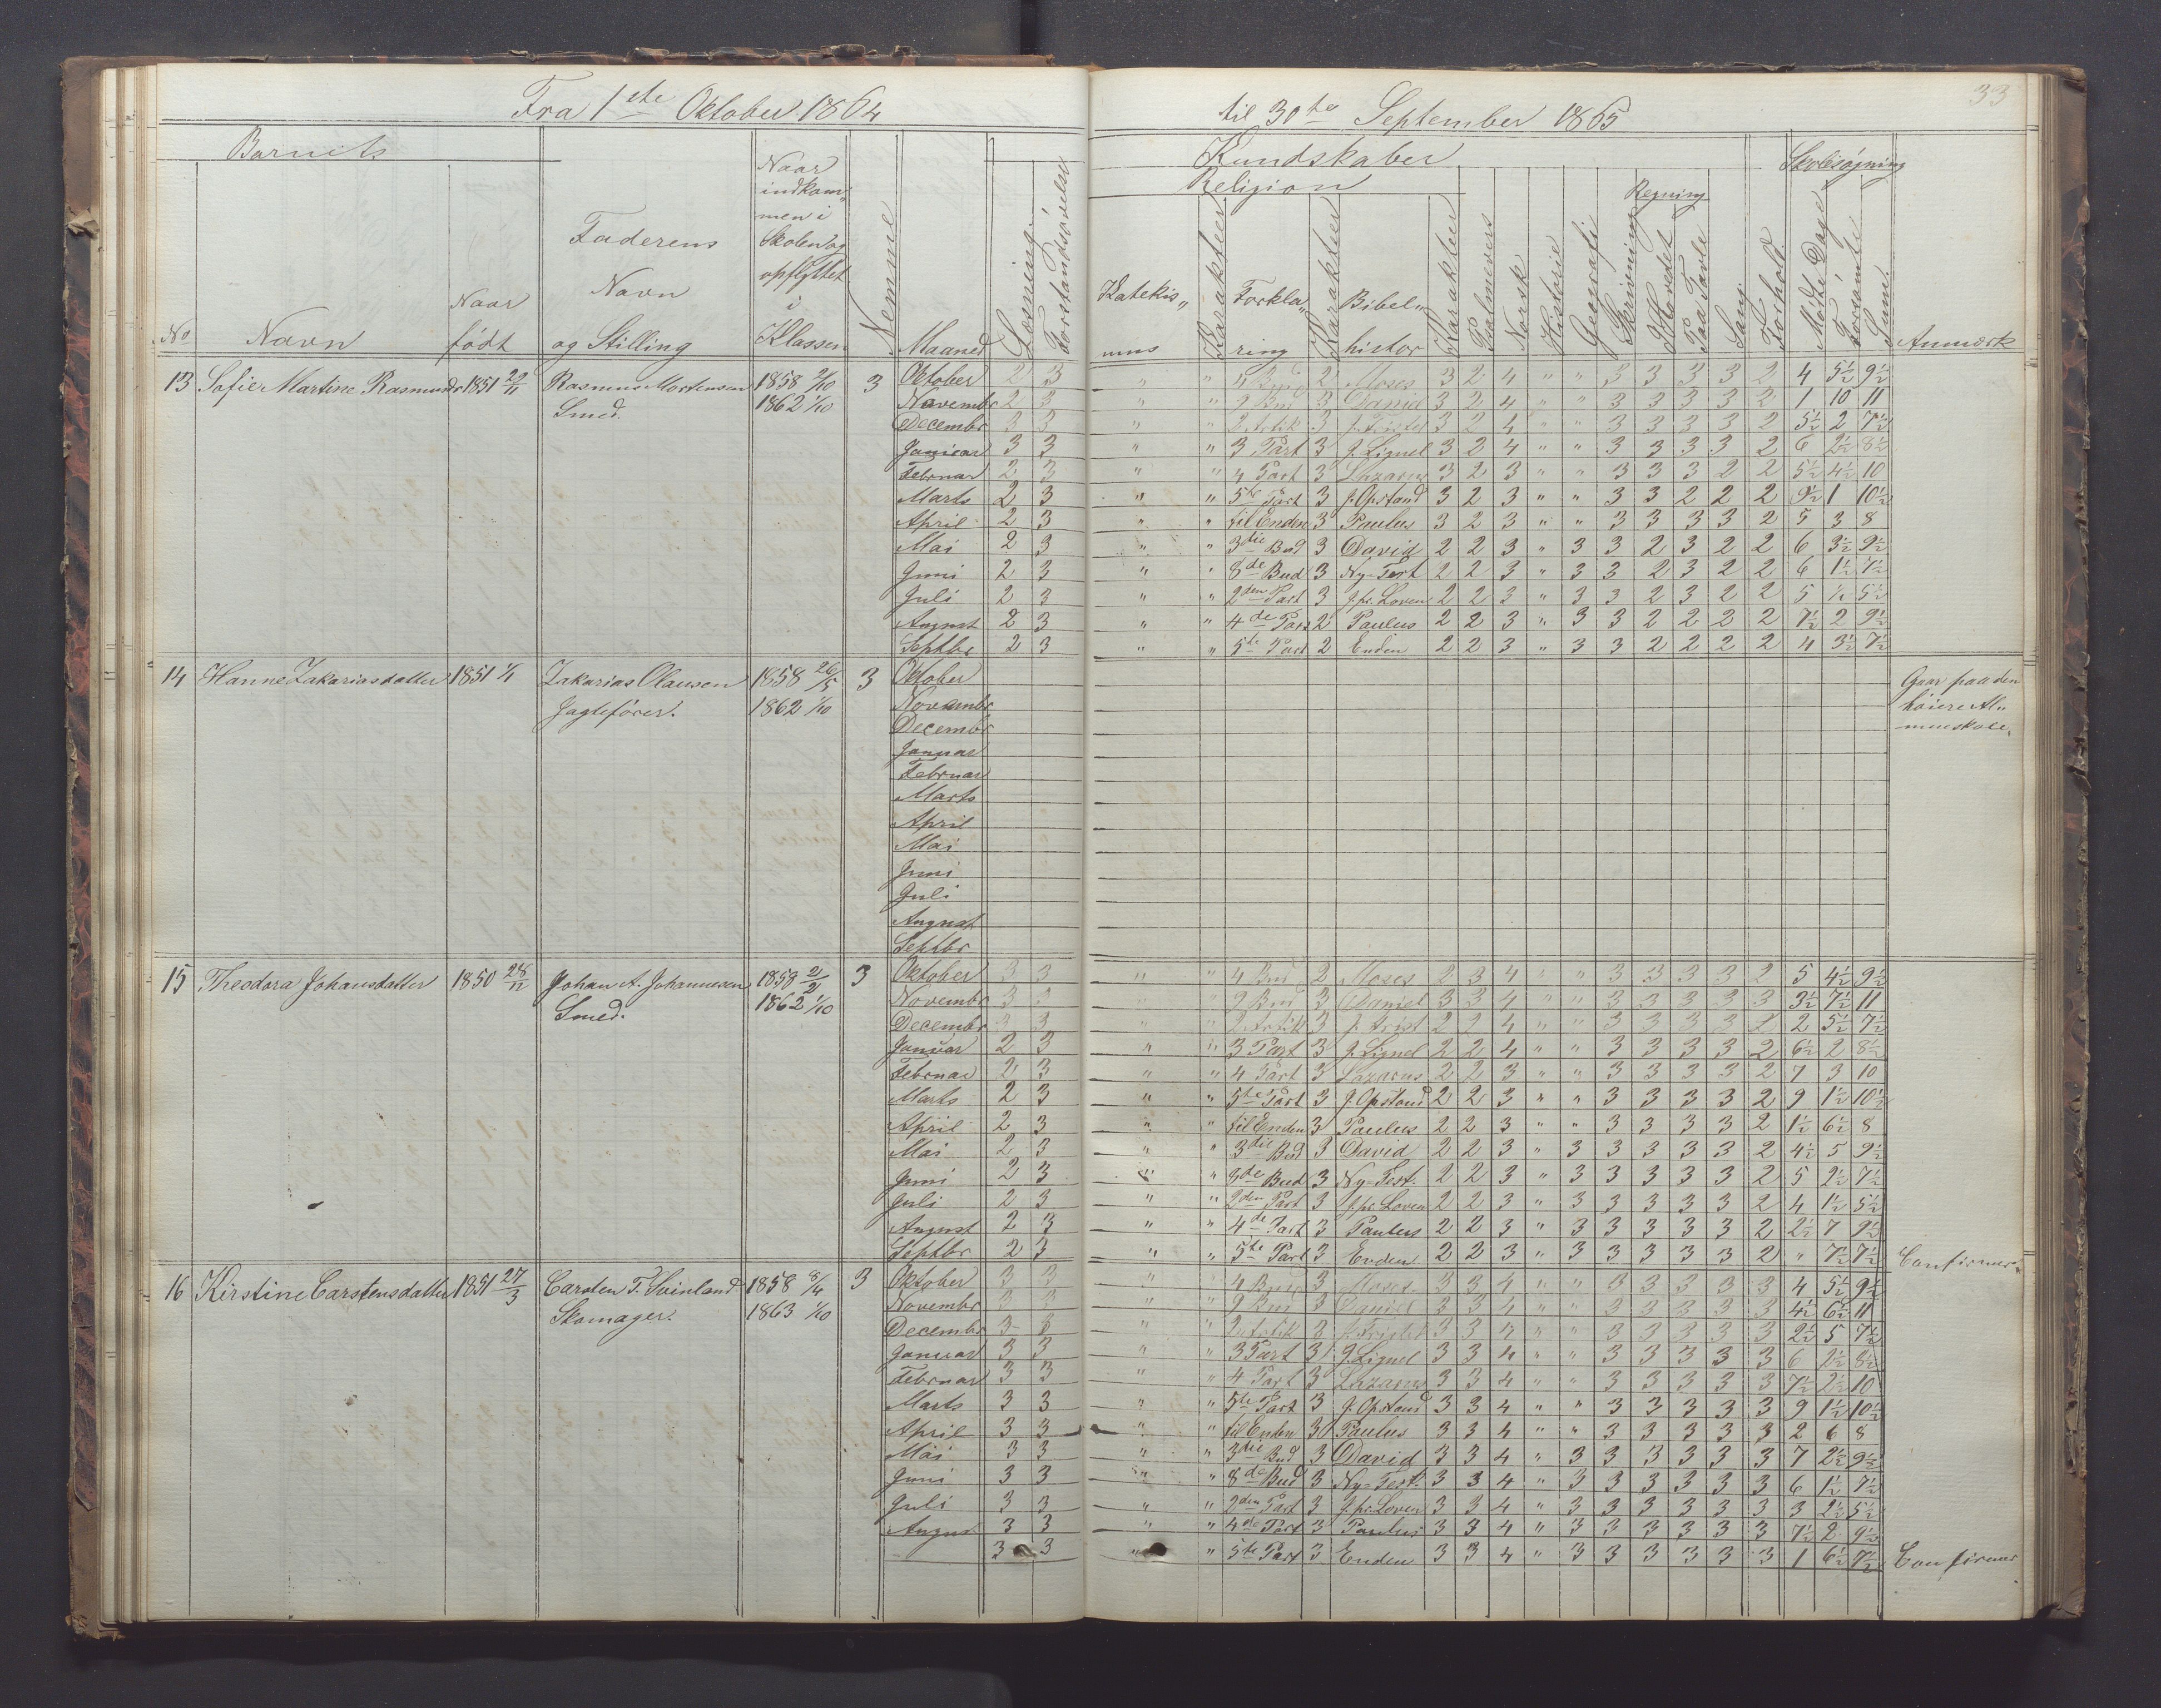 33
Fra 1ste Oktober 1864 til 30te September 1865
Barnets
Kundskaber
Skolesøgning
Religion
Regning
No
Navn
Naar født
Faderens Navn og Stilling
Naar indkommen i Skolen og opflyttet i Klassen
Nemme
Maaned
Læsning
Forstandsøvelse
Katekismus
Karakteer
Forklaring
Karakteer
Bibelhistor
Karakter
Psalmevers
Norsk
Historie
Geografi
Skrivning
I Hovedet
Paa Tavle
Sang
Forhold.
Mødte Dage
Forsømte
Sum.
Anmærk
13 Sofie Martine Rasmusdr 1851 Rasmus Mortensen Smed. 1858 2/10 1862 1/10 3
Oktober 2 3 " " 4 Bud 2 Moses 3 2 4 " " 3 3 3 3 2 4 5½ 9½
Novembr 2 3 " " 9 Bud 3 Daniel 3 2 4 " " 3 3 3 3 2 1 10 11
Decembr 3 3 " " 2 Artik 3 3 2 4 " " 3 3 3 3 2 5½ 2 7½
Januar 3 3 " " 3 Part 3 J. Lignel 3 2 4 " " 3 3 3 3 2 6 2½ 8½
Februar 2 3 " " 4 Part 3 Lazarus 3 2 3 " " 3 3 3 2 2 5½ 4½ 10
Marts 2 3 " " 5te Part 3 J. Opstand 3 2 3 " " 3 3 2 2 2 9½ 1 10½
April 2 3 " " til Enden 3 Paulus 3 2 3 " " 3 3 3 3 2 5 3 8
Mai 2 3 " " 3die Bud 3 David 2 2 3 " 3 3 2 3 2 2 6 3½ 9½
Juni 2 3 " " 8de Bud 3 Ny-Test 2 2 3 " 3 3 2 3 2 2 6 1½ 7½
Juli 2 3 " " 2den Part 3 J. pr. Loven 2 2 3 " 3 3 2 3 2 2 5 ½ 5½
August 2 3 " " 4de Part 2 Paulus 2 2 3 " 3 3 2 2 2 2 7½ 2 9½
Septbr 2 3 " " 5te Part 2 Enden 2 2 3 " 3 3 2 2 2 2 4 3½ 7½
14 Hanne Zakariasdatter 1851 1/1 Zakarias Olausen Jagtefører. 1858 26/5 1862 1/10 3
Gaar paa den høiere Almueskole.
Oktober
Novembr
Decembr
Januar
Februar
Marts
April
Mai
Juni
Juli
August
Septbr
15 Theodora Johansdatter 1850 Johan A. Johannesen Smed. 1858 2/2 1862 1/10 3
Oktober 3 3 " " 4 Bud 2 Moses 2 3 4 " " 3 3 3 3 2 5 4½ 9½
Novembr 3 3 " " 9 Bud 3 Daniel 3 3 4 " " 3 3 3 3 3 3½ 7½ 11
Decembr 3 3 " " 2 Artik 3 J. Frist 2 2 4 " " 3 3 3 3 2 2 5½ 7½
Januar 2 3 " " 3 Part 3 J. Lignel 2 2 4 " " 3 3 3 3 2 6½ 2 8½
Februar 2 3 " " 4 Part 3 Lazarus 2 2 3 " " 3 3 3 3 2 7 3 10
Marts 2 3 " " 5te Part 3 J. Opstand 2 2 3 " " 3 3 3 3 2 9 1½ 10½
April 2 3 " " til Enden 3 Paulus 2 2 3 " " 3 3 3 3 2 1½ 6½ 8
Mai 2 3 " " 3die Bud 3 David 2 2 3 " 3 3 3 3 3 2 4½ 5 9½
Juni 2 3 " " 8de Bud 3 Ny-Test. 2 2 3 " 3 3 3 3 3 2 5 2½ 7½
Juli 2 3 " " 2den Part 3 J. pr. Loven 2 2 3 " 3 3 3 3 3 2 4 1½ 5½
August 2 3 " " 4de Part 3 Paulus 2 2 3 " 3 3 3 3 3 2 2½ 7 9½
Septbr 2 3 " " 5te Part 3 Enden 2 2 3 " 3 3 3 3 3 2 " 7½ 7½ Confirmer.
16 Kirstine Carstensdatter 1851 27/3 Carsten T. Svinland Skomager. 1858 8/4 1863 1/10 3
Oktober 3 3 " " 4 Bud 3 Moses 3 3 4 " " 3 3 3 3 3 4 5½ 9½
Novembr 3 3 " " 9 Bud 3 Daniel 3 3 4 " " 3 3 3 3 3 4½ 6½ 11
Decembr 3 3 " " 2 Artik 3 3 3 4 " " 3 3 3 3 3 2½ 5 7½
Januar 3 3 " " 3 Part 3 J. Lignel 3 3 4 " " 3 3 3 3 3 6 2½ 8½
Februar 3 3 " " 4 Part 3 Lazarus 3 3 4 " " 3 3 3 3 3 7½ 2½ 10
Marts 3 3 " " 5te Part 3 J. Opstand 3 3 4 " " 3 3 3 3 3 9 1½ 10½
April 3 3 " " til Enden 3 Paulus 3 3 4 " " 3 3 3 3 3 2 6 8
Mai 3 3 " " 3die Bud 3 David 3 3 4 " 3 3 3 3 3 3 7 2½ 9½
Juni 3 3 " " 8de Bud 3 Ny-Test. 3 3 4 " 3 3 3 3 3 3 6 1½ 7½
Juli 3 3 " " 2den Part 3 J. pr. Loven 3 3 4 " 3 3 3 3 3 3 3 2½ 5½
August 3 3 " " 4de Part 3 Paulus 3 3 4 " 3 3 3 3 3 3 7½ 2 9½
3 3 " " 5te Part 3 Enden 3 3 4 " 3 3 3 3 3 3 1 6½ 7½ Confirmer